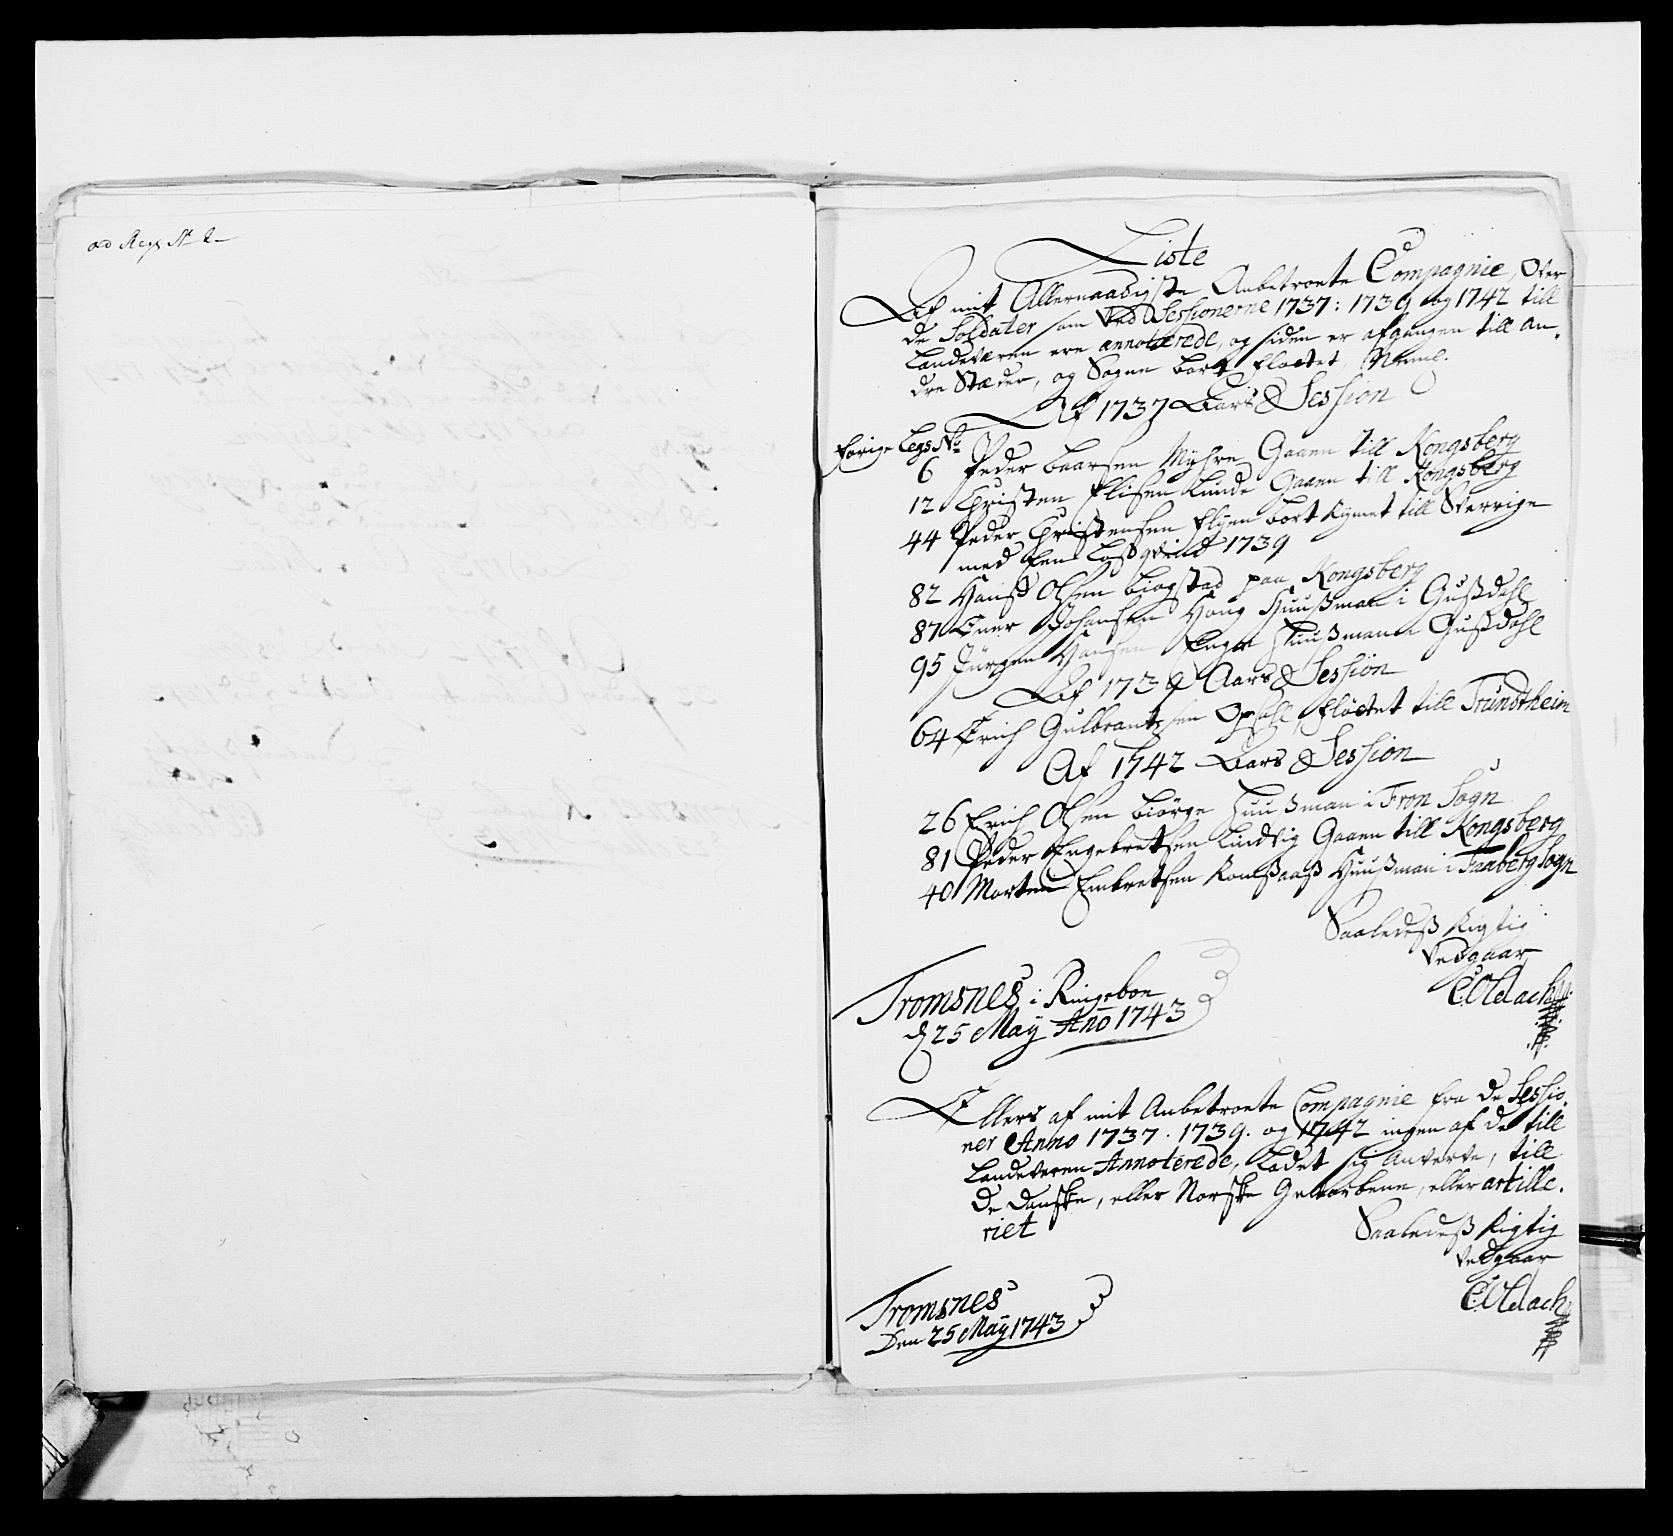 ad Regs No 2
Liste
Af mit Allernaadigste Anbetroete Compagnie, Over
de Soldater som ved Sessionerne 1737: 1739 og 1742 till
Landeværen ere annoterede, og siden er afgangen till an-
dre Stæder, og Sogne bort fløttet, Neml.
Af 1737 Aars Session
Forige Legs No
6 Peder Laarsen Myhre Gaaen till Kongsberg
12 Christen Elisen Lunde Gaaen till Kongsberg
44 Peder Christensen Flyen bort rømet till Sverrige
med Een Løsqvind 1739
82 Hanss Olsen Biøgstad paa Kongsberg
87 Ener Johansen Houg Huussman i Gussdahl
95 Jürgen Hansen Enge Huussman Gussdahl
Af 1739 Aars Session
64 Erich Gulbrantzsen Opsahl fløttet till Trundtheim
Af 1742 Aars Session
26 Erich Olsen Biørge Huussman i Fron Sogn
81 Peder Engebretsen Lindvig Gaaen till Kongsberg
40 Morten Embretsen Romssaass Huussman i Faaberg Sogn
Saaledess Rigtig
Vedgaar
Tromsnes i Ringeboe
d 25 May Ano 1743
COldach
Ellers af mit Anbetroete Compagnie fra de Sessio-
ner Anno 1737. 1739. og 1742 ingen af de till
Landeveren Annoterede, Ladet sig Anverve, till
de Danske, eller Norske Gevorbene, eller artille-
riet
Saaledess Rigtig
Vedgaar
Tromsnes
Den 25 May 1743
COldach